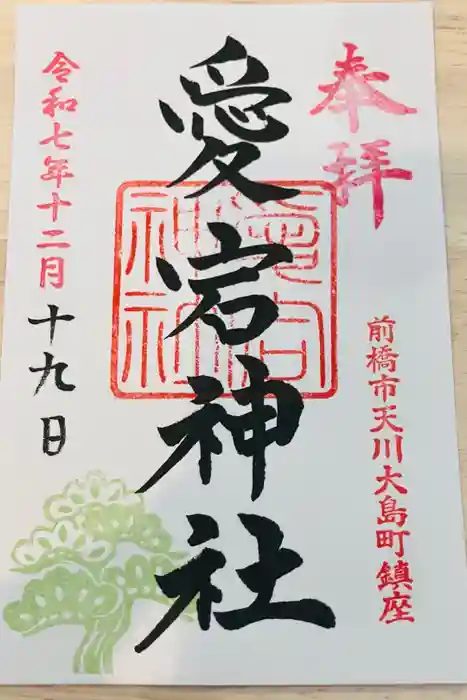 奉拝
前橋市天川大島町鎮座
愛宕神社
愛宕神社
令和七年十二月十九日